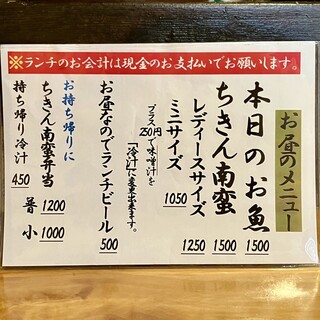 ※ランチのお会計は現金のお支払いでお願いします。
お昼のメニュー
本日のお魚 1500
ちきん南蛮 1500
レディースサイズ 1250
ミニサイズ 1050
プラス250円で味噌汁を
「冷汁」に変更出来ます。
お昼なのでランチビール 500
お持ち帰りに
ちきん南蛮弁当 普 1200
小 1000
持ち帰り冷汁 450